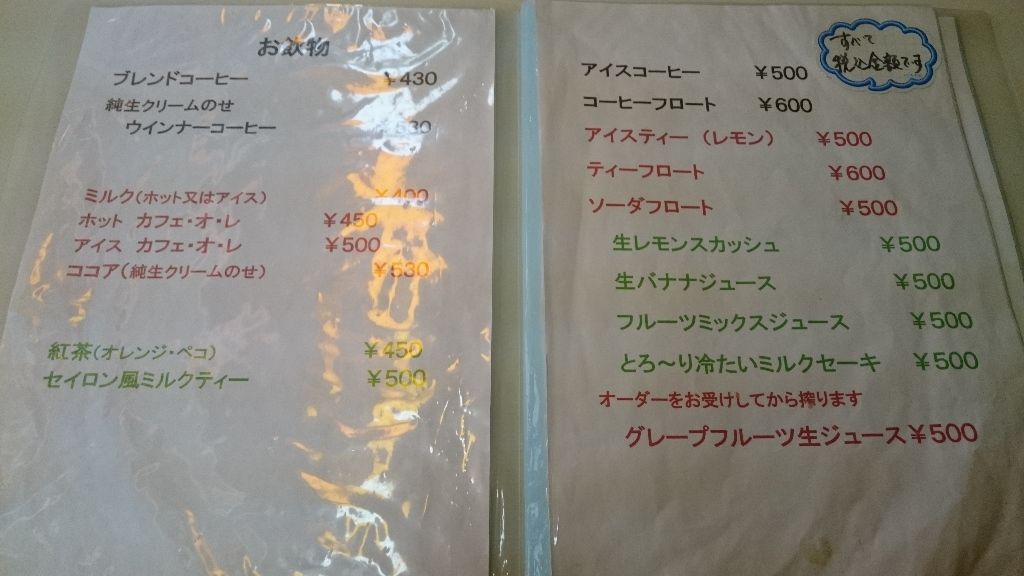 お飲物
ブレンドコーヒー ￥430
純生クリームのせ
ウインナーコーヒー
ミルク(ホット又はアイス) ￥400
ホット カフェ・オ・レ ￥450
アイス カフェ・オ・レ ￥500
ココア(純生クリームのせ) ￥530
紅茶(オレンジ・ペコ) ￥450
セイロン風ミルクティー ￥500
すべて
税込金額です
アイスコーヒー ￥500
コーヒーフロート ￥600
アイスティー（レモン） ￥500
ティーフロート ￥600
ソーダフロート ￥500
生レモンスカッシュ ￥500
生バナナジュース ￥500
フルーツミックスジュース ￥500
とろ～り冷たいミルクセーキ ￥500
オーダーをお受けしてから搾ります
グレープフルーツ生ジュース￥500